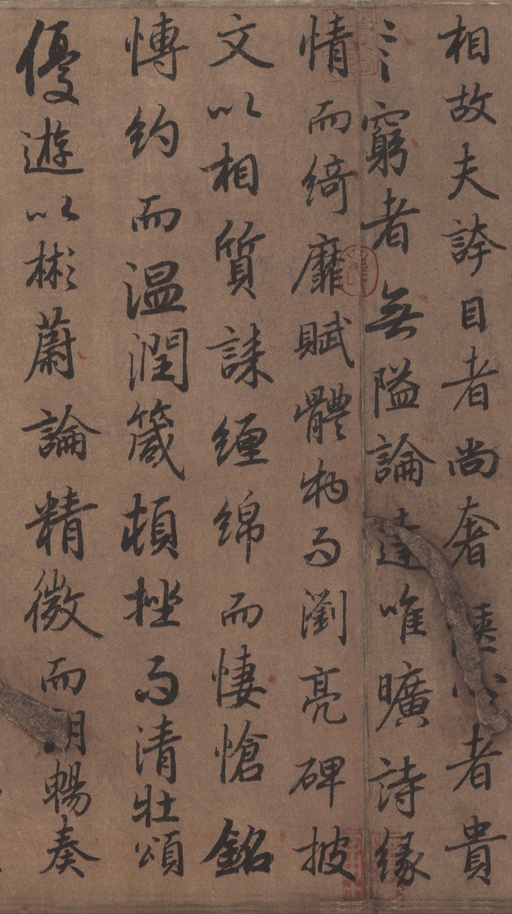 相故夫誇目者尚奢愜心者貴
窮者無隘論達唯曠詩緣
情而綺靡賦體物而瀏亮碑披
文以相質誄纏綿而悽愴銘
博約而温潤箴頓挫而清壯頌
優遊以彬蔚論精微而朗暢奏